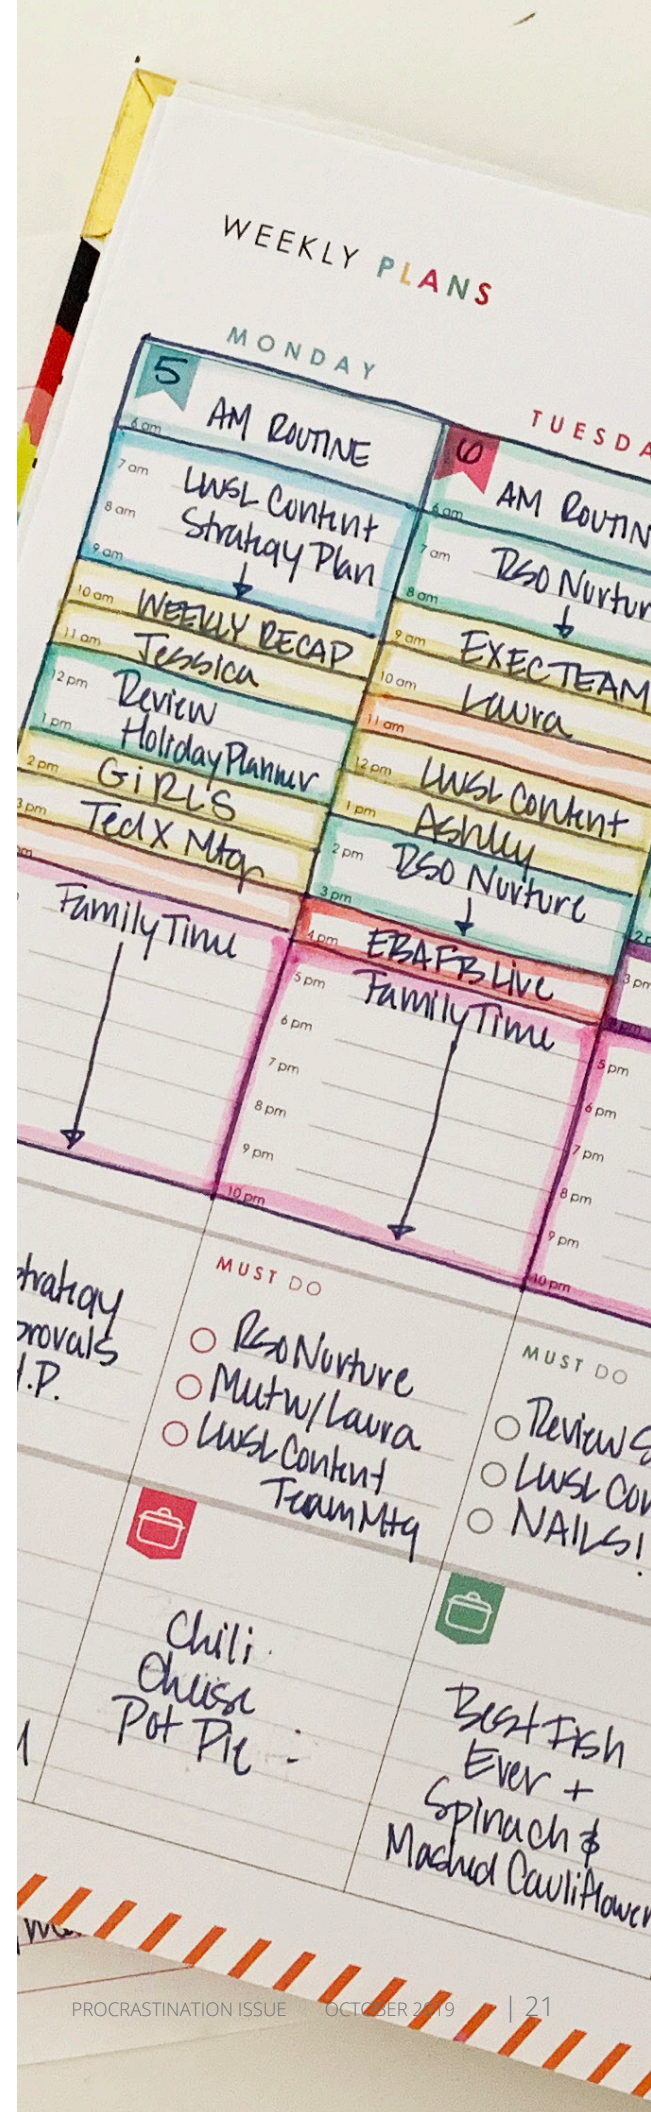 WEEKLY PLANS
MONDAY
5
AM ROUTINE
6 am
7 am
LWSL Content
8 am
Strategy Plan
9 am
10 am WEEKLY RECAP
11 am Jessica
12 pm Review
1 pm Holiday Planner
2 pm GIRLS
3 pm TedX Mtg
Family Time
TUESDA
6
AM ROUTIN
6 am
7 am RSO Nurtur
8 am
9 am EXEC TEAM
10 am Laura
11 am
12 pm LWSL Content
1 pm Ashley
2 pm RSO Nurture
3 pm
4 pm EBA FB Live
5 pm Family Time
6 pm
7 pm
8 pm
9 pm
10 pm
2 p
3 pm
5 pm
6 pm
7 pm
8 pm
9 pm
10 pm
trategy
provals
.P.
MUST DO
RSO Nurture
Mtg w/ Laura
LWSL Content
Team Mtg
MUST DO
Review S
LWSL Con
NAILS!
Chili
Cheese
Pot Pie
Best Fish
Ever +
Spinach &
Mashed Cauliflower
PROCRASTINATION ISSUE OCTOBER 2019 | 21